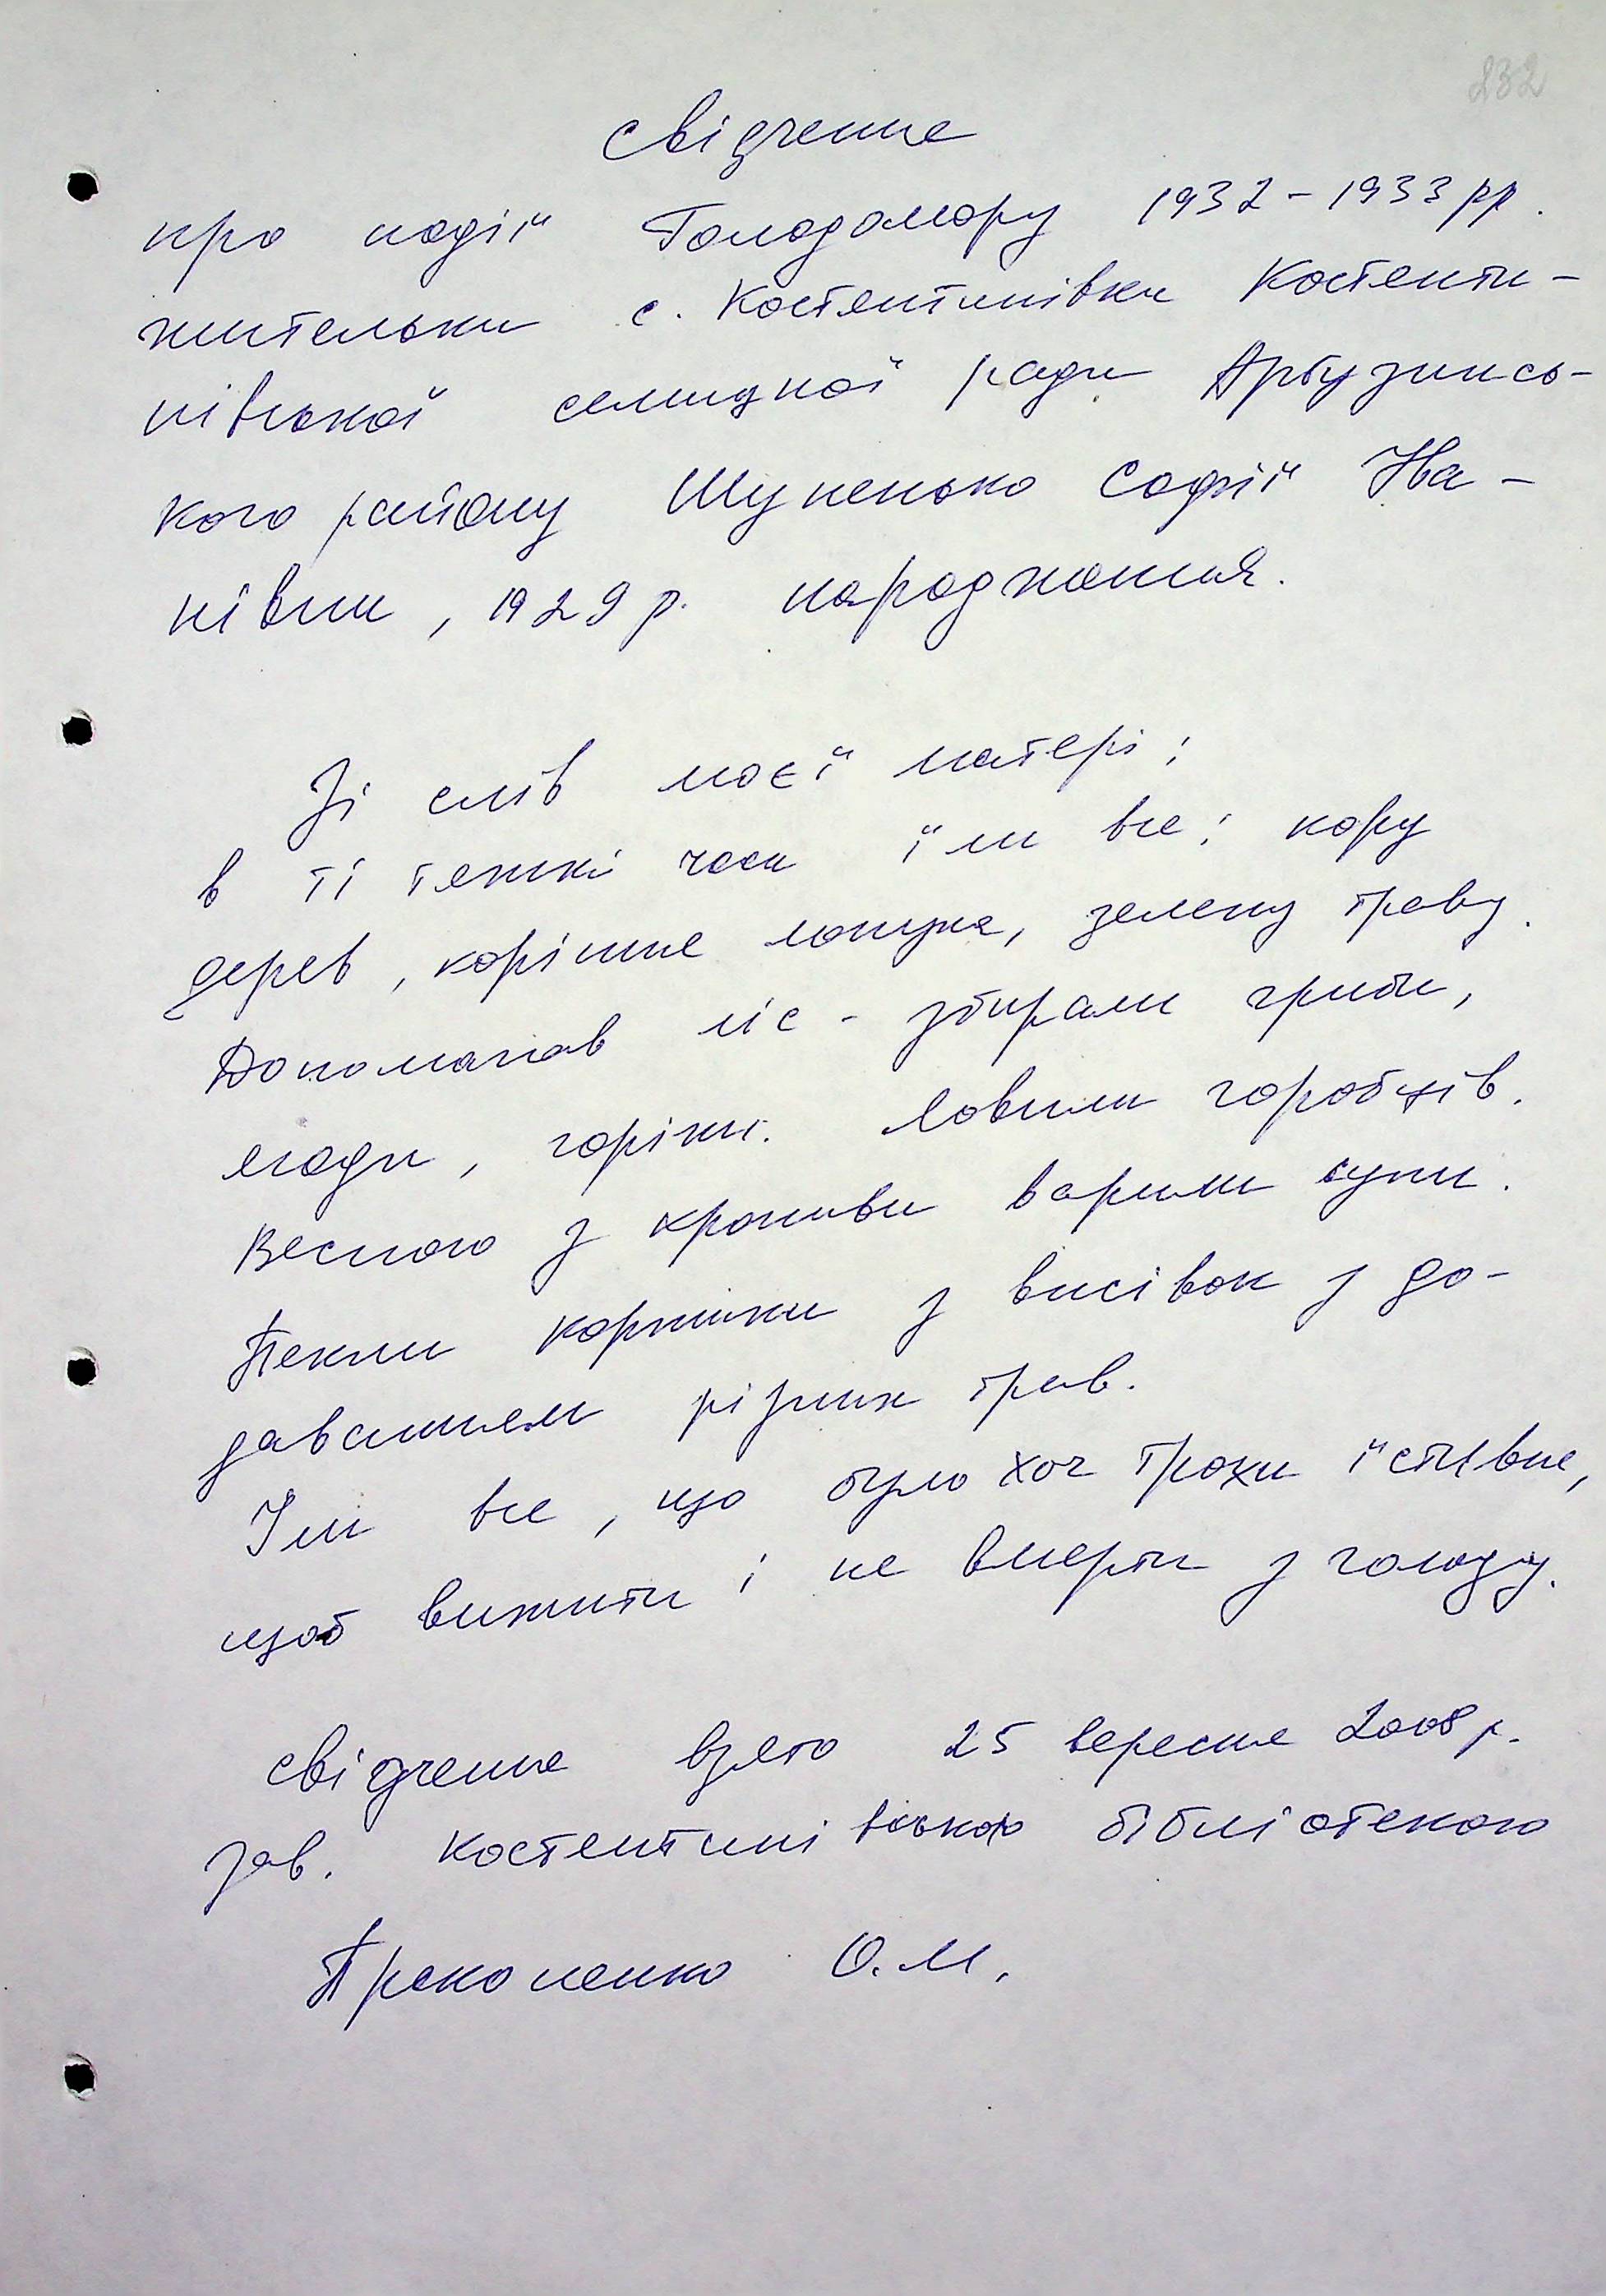 232
Свідчення
про події Голодомору 1932-1933 рр.
жительки с. Костянтинівка Костянти-
нівської селищної ради Арбузинсь-
кого району Шупенько Софії Іва-
нівни, 1929 р. народження.
Зі слів моєї матері:
в ті тяжкі часи їли все: кору
дерев, коріння лопуха, зелену траву.
Допомагав ліс - збирали гриби,
ягоди, горіхи. Ловили горобців.
Весною з кропиви варили супи.
Пекли коржики з висівок з до-
даванням різних трав.
Їли все, що було хоч трохи їстівне,
щоб вижити і не вмерти з голоду.
Свідчення взято 25 вересня 2008 р.
зав. Костянтинівською бібліотекою
Прокопенко О.М.